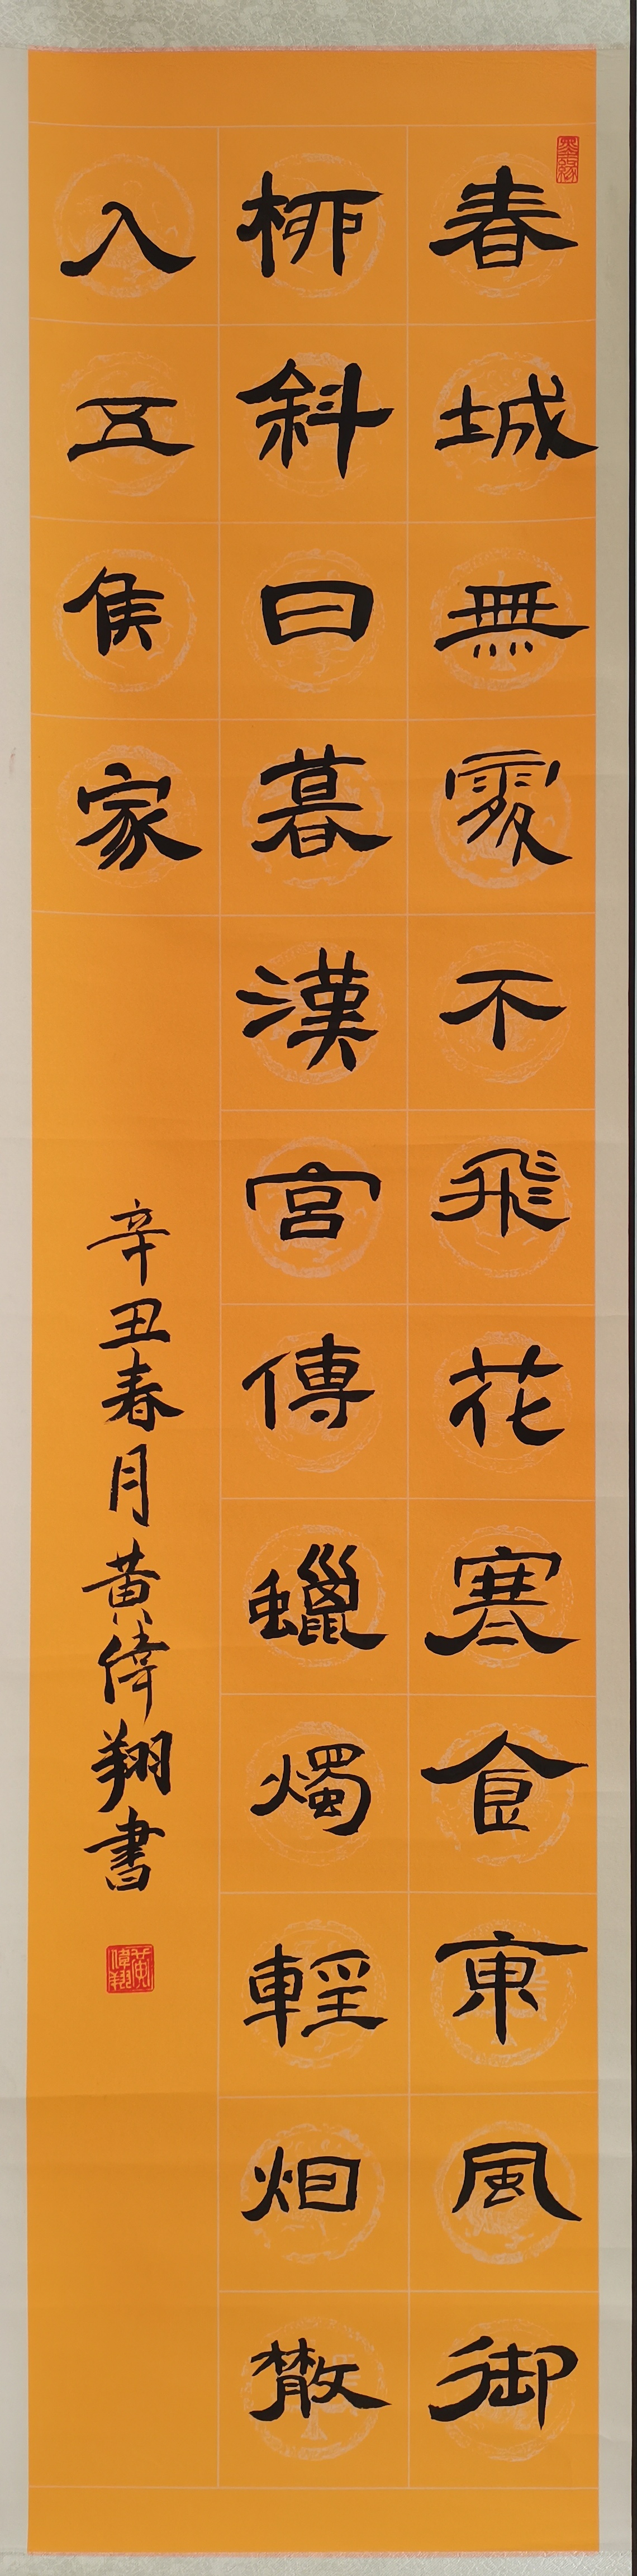 墨緣
春城無處不飛花寒食東風御
柳斜日暮漢宮傳蠟燭輕烟散
入五侯家
辛丑春月黃偉翔書
黃偉翔